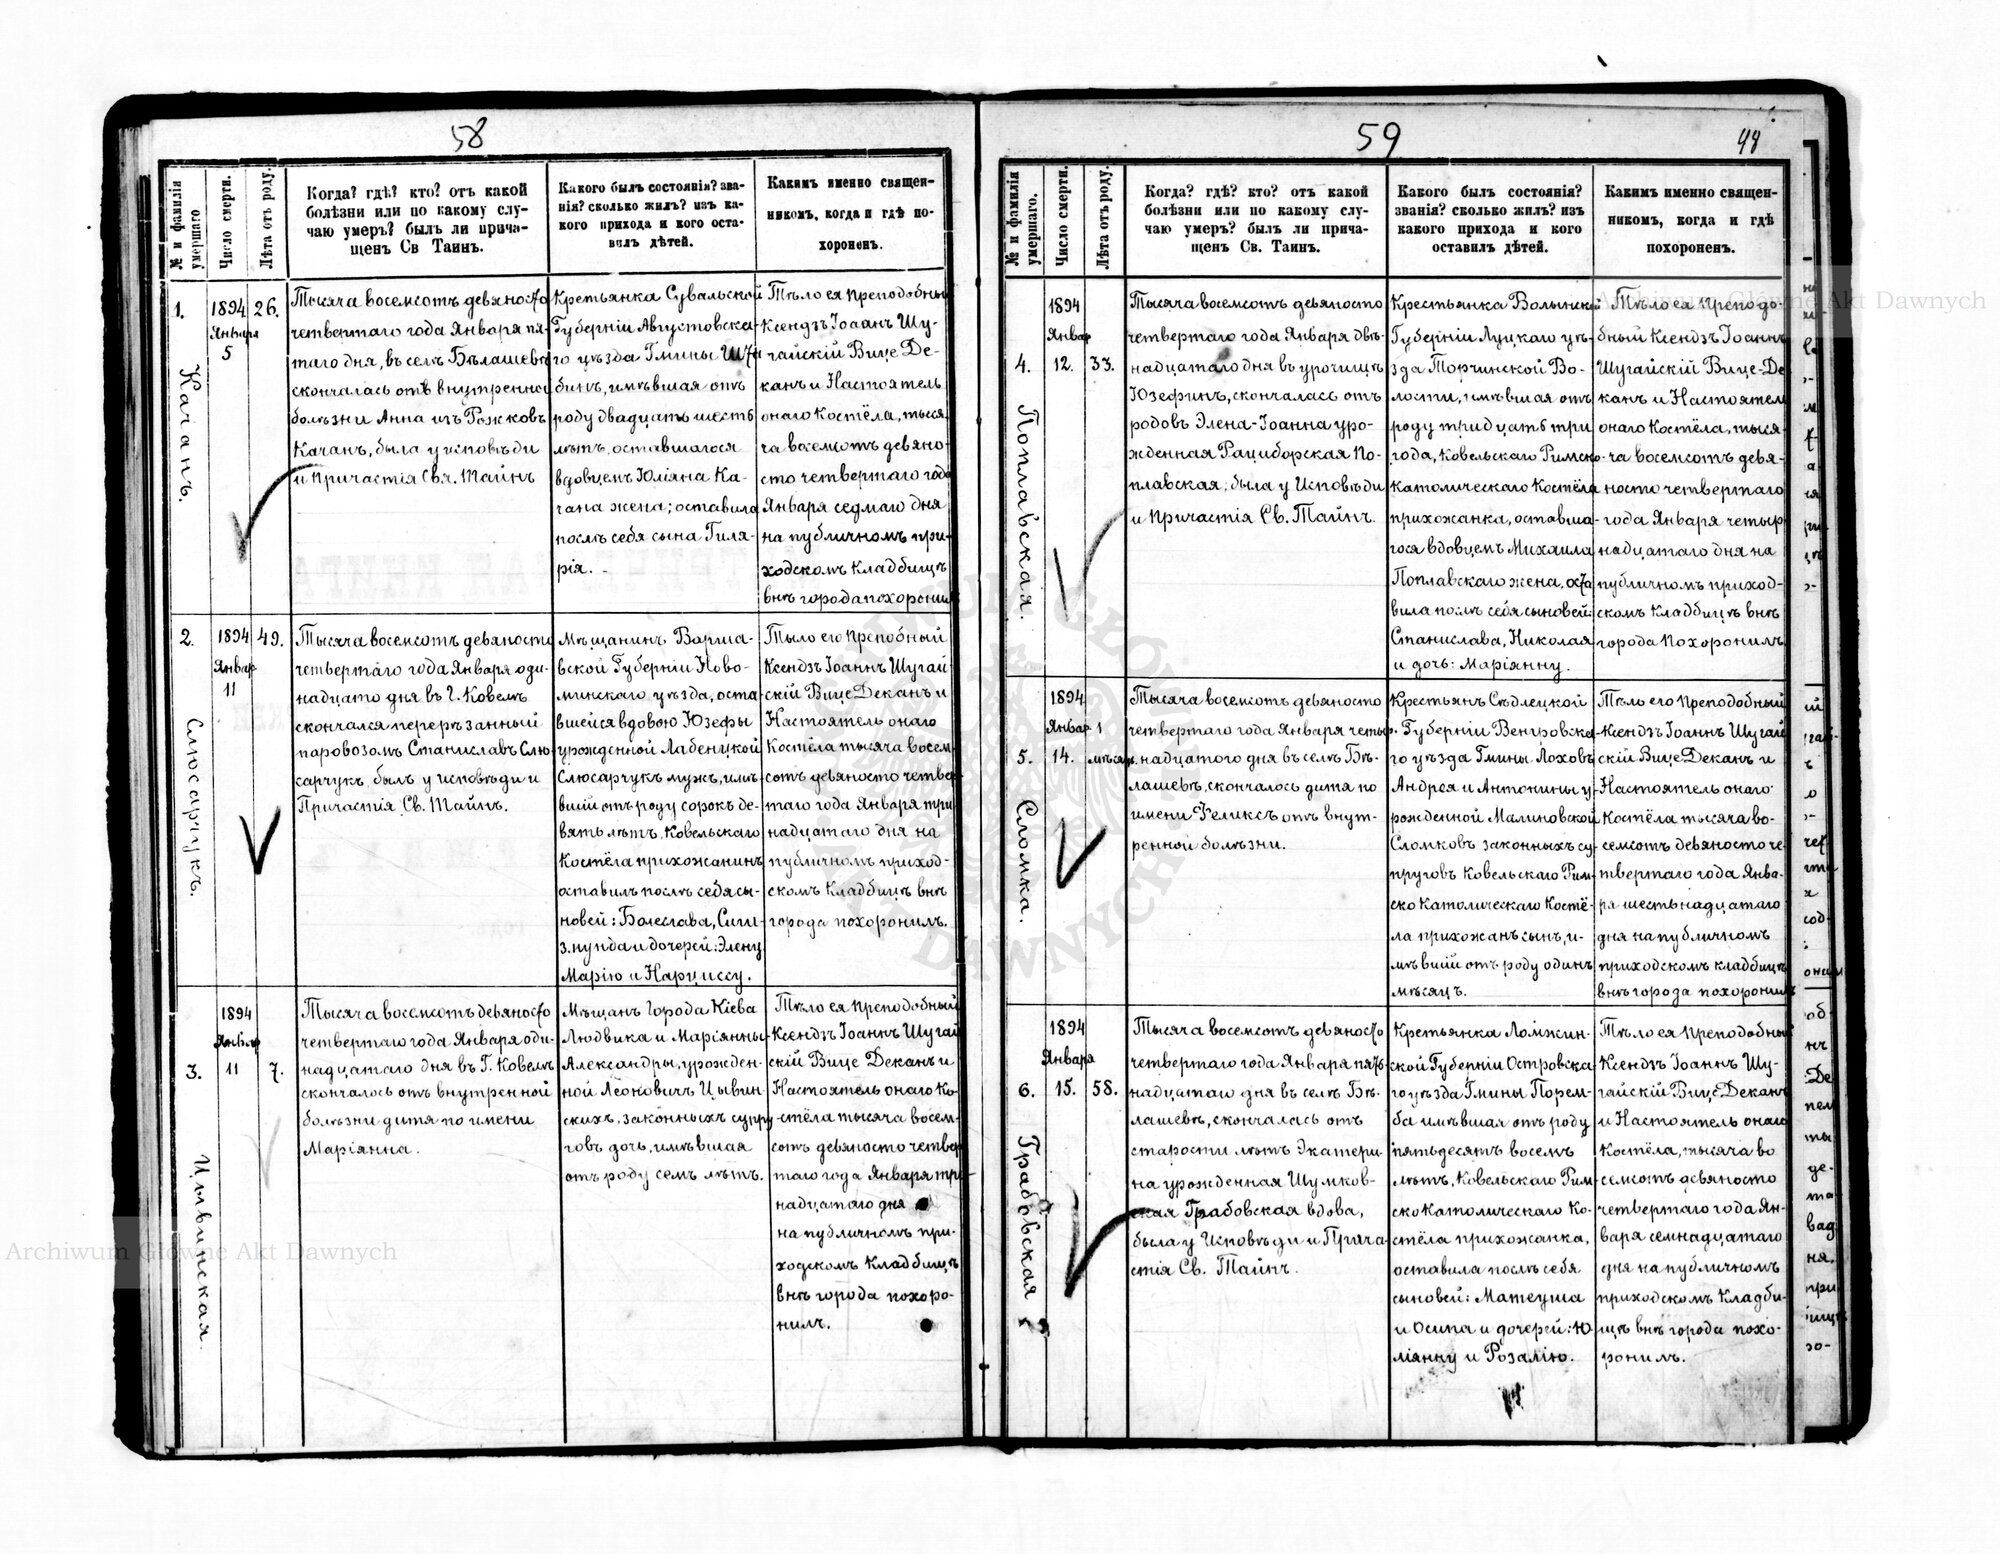 58
№ и фамилія умершаго
Число смерти.
Лѣта отъ роду.
Когда? гдѣ? кто? отъ какой
болѣзни или по какому слу-
чаю умеръ? былъ ли прича-
щенъ Св Таинъ.
Какого былъ состоянія? зва-
нія? сколько жилъ? изъ ка-
кого прихода и кого оста-
вилъ дѣтей.
Какимъ именно священ-
никомъ, когда и гдѣ по-
хороненъ.
1.
Качанъ.
1894
Января
5
26.
Тысяча восемсотъ девяносто
четвертаго года Января пя-
таго дня, въ селѣ Бѣлашевѣ
скончалась отъ внутренней
болѣзни Анна изъ Рожковъ
Качанъ, была у исповѣди
и Причастія Свя. Тайнъ
Кретьянка Сувальской
Губерніи Августовска-
го уѣзда Гмины Шта
бинъ, имѣвшая отъ
роду двадцать шесть
лѣтъ, оставшагося
вдовцемъ Юліяна Ка-
чана жена; оставила
послѣ себя сына Гиля-
рія.
Тѣло ея Преподобный
Ксендзъ Іоаанъ Шу-
гайскій Вице Де-
канъ и Настоятель
онаго Костёла, тыся
ча восемсотъ девяно-
сто четвертаго года
Января седмаго дня
на публичномъ при-
ходскомъ Кладбищѣ
внѣ города похоронилъ
2.
Слюсарчукъ.
1894
Январ
11
49.
Тысяча восемсотъ девяносто
четвертаго года Января оди-
надцато дня въ г. Ковелѣ
скончался перерѣзанный
паровозомъ Станиславъ Слю
сарчукъ, былъ у исповѣди и
Причастія Св. Тайнъ.
Мѣщанинъ Варша-
вской Губерніи Ново-
минскаго уѣзда, оста
вшейся вдовою Юзефы
урожденной Лабенцкой
Слюсарчукъ мужъ, имѣ
вшій отъ роду сорокъ де-
вять лѣтъ, Ковельскаго
Костёла прихожанинъ
оставилъ послѣ себя сы-
новей: Болеслава, Сиги-
змунда и дочерей: Элену
Марію и Нарциссу.
Тѣло его Преподобный
Ксендзъ Іоаннъ Шугай
скій Вице Деканъ и
Настоятель онаго
Костёла тысяча восем
сотъ девяносто четвер
таго года Января три
надцатаго дня на
публичномъ приход-
скомъ Кладбищѣ внѣ
города похоронилъ.
3.
Цывинская.
1894
Январ
11
7.
Тысяча восемсотъ девяносто
четвертаго года Января оди-
надцатаго дня въ Г. Ковелѣ
скончалось отъ внутренной
болѣзни дитя по имени
Маріянна.
Мѣщанъ Города Кіева
Людвика и Маріянны
Александры, урожден-
ной Леоновичъ Цывин
скихъ, законныхъ супру
говъ дочь, имѣвшая
отъ роду семъ лѣтъ.
Тѣло ея Преподобный
Ксендзъ Іоаннъ Шугай
скій Вице Деканъ и
Настоятель онаго Ко-
стёла тысяча восем-
сотъ девяносто четвер
таго года Января три
надцатаго дня
на публичномъ при-
ходскомъ Кладбищѣ
внѣ города похоро-
нилъ.
59
48
№ и фамилія умершаго.
Число смерти.
Лѣта отъ роду.
Когда? гдѣ? кто? отъ какой
болѣзни или по какому слу-
чаю умеръ? былъ ли прича-
щенъ Св. Таинъ.
Какого былъ состоянія?
званія? сколько жилъ? изъ
какого прихода и кого
оставилъ дѣтей.
Какимъ именно священ-
никомъ, когда и гдѣ
похороненъ.
4.
Поплавская.
1894
Январ
12.
33.
Тысяча восемсотъ девяносто
четвертаго года Января двѣ-
надцатаго дня въ урочищѣ
Юзефинъ, скончалась отъ
родовъ Элена-Іоанна уро-
жденная Рациборская По-
плавская; была у Исповѣди
и Причастія Св. Тайнъ.
Крестьянка Волынской
Губерніи Луцкаго уѣ-
зда Торчинской Во-
лости, имѣвшая отъ
роду тридцать три
года, Ковельскаго Римско-
католическаго Костёла
прихожанка, оставша-
гося вдовцемъ Михаила
Поплавскаго жена, оста
вила послѣ себя сыновей:
Станислава, Николая
и дочь: Маріянну.
Тѣло ея Преподо-
бный Ксендзъ Іоаннъ
Шугайскій Вице-Де
канъ и Настоятель
онаго Костёла, тыся-
ча восемсотъ девя-
носто четвертаго
года Января четыр
надцатаго дня на
публичномъ приход-
скомъ Кладбищѣ внѣ
города Похоронилъ
5.
Сломка.
1894
Январ
14.
1
мѣсяць.
Тысяча восемсотъ девяносто
четвертаго года Января четыр.
надцатого дня въ селѣ Бѣ-
лашевѣ, скончалось дитя по
имени Феликсъ отъ внут-
ренной болѣзни.
Крестьянъ Сѣдлецкой
Губерніи Венгровска
го уѣзда Гмины Лоховъ
Андрея и Антонины у-
рожденной Малиновской
Сломковъ законныхъ су-
пруговъ Ковельскаго Рим-
ско Католическаго Костё-
ла прихожанъ сынъ, и-
мѣвшій отъ роду одинъ
мѣсяцъ.
Тѣло его Преподобный
Ксендзъ Іоаннъ Шугай
скій Вице Деканъ и
Настоятель онаго
Костёла тысяча во-
семсотъ девяносто че-
твертаго года Янва-
ря шестьнадцатаго
дня на публичномъ
приходскомъ кладбищѣ
внѣ города похоронилъ
6.
Грабовская
1894
Января
15.
58.
Тысяча восемсотъ девяносто
четвертаго года Января пять
надцатаго дня въ селѣ Бѣ-
лашевѣ, скончалась отъ
старости лѣтъ Экатери-
на урожденная Шумков-
ская Грабовская вдова,
была у Исповѣди и Прича-
стія Св. Тайнъ.
Кретьянка Ломжин-
ской Губерніи Островска
го уѣзда Гмины Порем-
ба имѣвшая отъ роду
пятьдесятъ восемъ
лѣтъ, Ковельскаго Рим
ско Католическаго Ко-
стёла прихожанка,
оставила послѣ себя
сыновей: Матеуша
и Осипа и дочерей: Ю
ліянну и Розалію.
Тѣло ея Преподобный
Ксендзъ Іоаннъ Шу-
гайскій Вице Деканъ
и Настоятель онаго
Костёла, тысяча во
семсотъ девяносто
четвертаго года Ян-
варя семнадцатаго
дня на публичномъ
приходскомъ Кладби-
щѣ внѣ города похо-
ронилъ.
Archiwum Główne Akt Dawnych
Archiwum Główne Akt Dawnych
ARCHIWUM GŁÓWNE AKT DAWNYCH